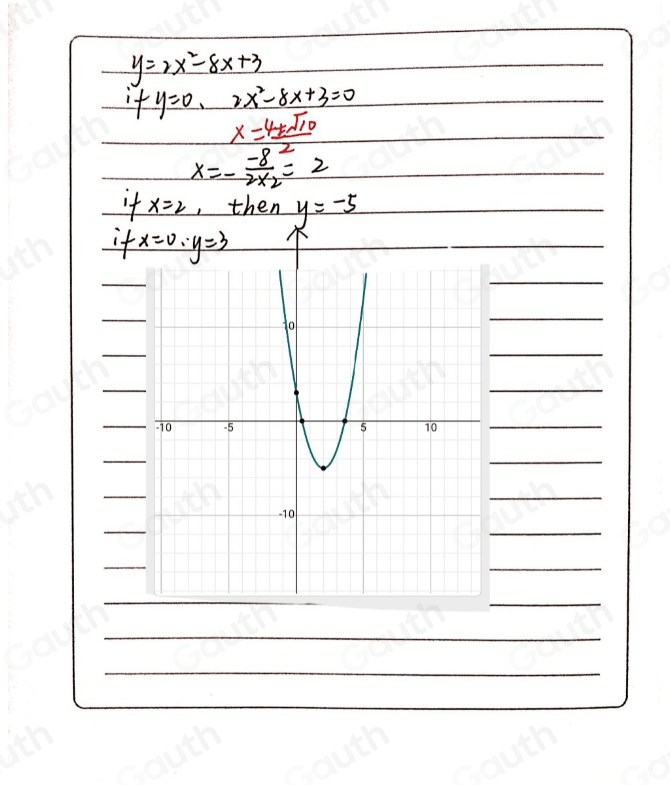 y=2x²-8x+3
if y=0、 2x²-8x+3=0
x=4±√10/2
x=- -8/2×2 = 2
if x=2, then y=-5
if x=0. y=3
10
-10 -5 5 10
-10
Gauth